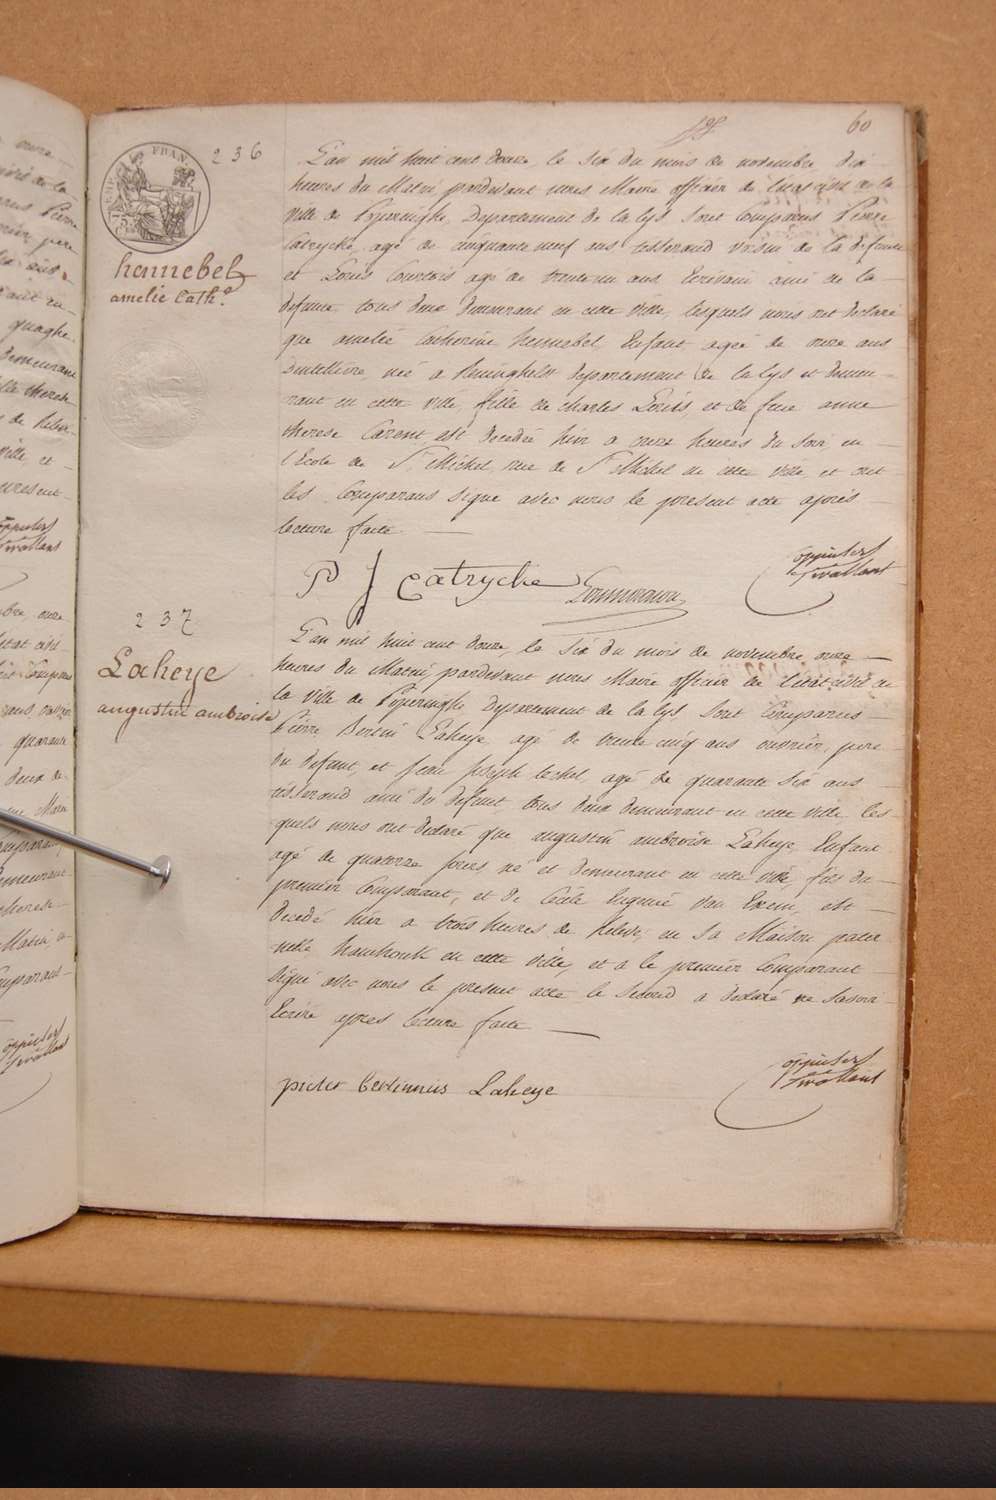 60
236
FRAN
hannebel
amelie Cath.e
L'an mil huit cent douze, le six du mois de novembre, dix
heures du Matin pardevant nous Maire officier de l'état civil de la
ville de Poperinghe, Departement de la Lys sont Comparus Pierre
Catrycke, agé de cinquante neuf ans tisserand voisin de la defunte
et Louis Courtois agé de trente un ans Ecrivain ami de la
defunte tous deux demeurant en cette ville, lesquels nous ont declaré
que amelie Catherine hennebel, Enfant agée de onze ans
Dentellière, née à Reninghelst departement de la Lys et demeu-
rant en cette ville, fille de Charles Louis, et de feue anne
therese Carent, est decedée hier a onze heures du soir, en
l'Ecole de St Michel, rue de St Michel en cette ville, et ont
les Comparans signé avec nous le present acte après
lecture faite
P J Catrycke
237
Laheye
augustin ambroise
L'an mil huit cent douze, le six du mois de novembre, onze
heures du Matin, pardevant nous Maire officier de l'état civil de
la ville de Poperinghe Departement de la Lys sont Comparus
Pierre Bertin Laheye agé de trente cinq ans ouvrier, pere
du defunt, et Jean Joseph agé de quarante six ans
tisserand ami du defunt, tous deux demeurant en cette ville, les-
quels nous ont declaré que augustin ambroise Laheye, Enfant
agé de quatorze jours, né et demeurant en cette ville, fils du
premier Comparant, et de Cécile Eugenie Van Exem, est
decedé hier a trois heures de relevé, en sa Maison pater
nelle en cette ville, et a le premier Comparant
signé avec nous le present acte le second a declaré ne savoir
Ecrire apres lecture faite
pieter bertinnus Laheye